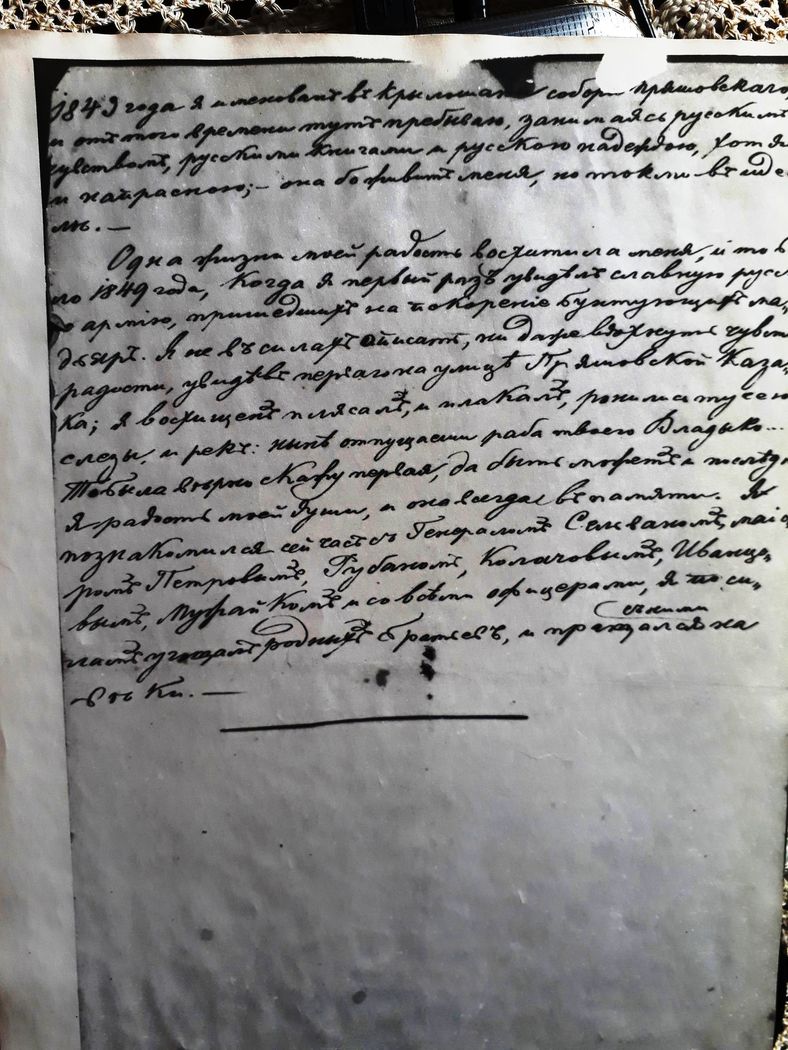 1843 года я именованъ въ крылошан собора пряшовскаго,
и отъ того времени тутъ пребываю, занимаясь русскимъ
чувствомъ, русскими книгами и русскою надеждою, хотя
и напрасною; – она боживитъ меня, но токмо въ иде-
лѣ. —
Одна жизни моей радость восхитила меня, и то б
ло 1849 года, когда я первый разъ увидѣлъ славную русс
ю армію, пришедшихъ на покореніе бунтующихъ ма-
дьяръ. Я не въ силахъ описатъ, ни даже вдохнутъ чувств
радости, увидѣвъ перваго на улицѣ Пряшовской Каза-
ка; я восхищенъ плясалъ, и плакалъ, ронились
слезы, и рекъ: нынѣ отпущаеши раба твоего Владыко...
То была вѣрно скажу первая, да быть можетъ и послѣд
я радость моей души, и она всегда въ памяти. Я
познакомился сей часъ съ Генераломъ Селваномъ, маіо
ромъ Петровымъ, Рубаномъ, Колачовымъ, Иванцо-
вымъ, Мужайкомъ и со всѣми офицерами, я по си-
ламъ угощалъ родныхъ братьевъ, и прощался
съ ними
на
вѣки. —